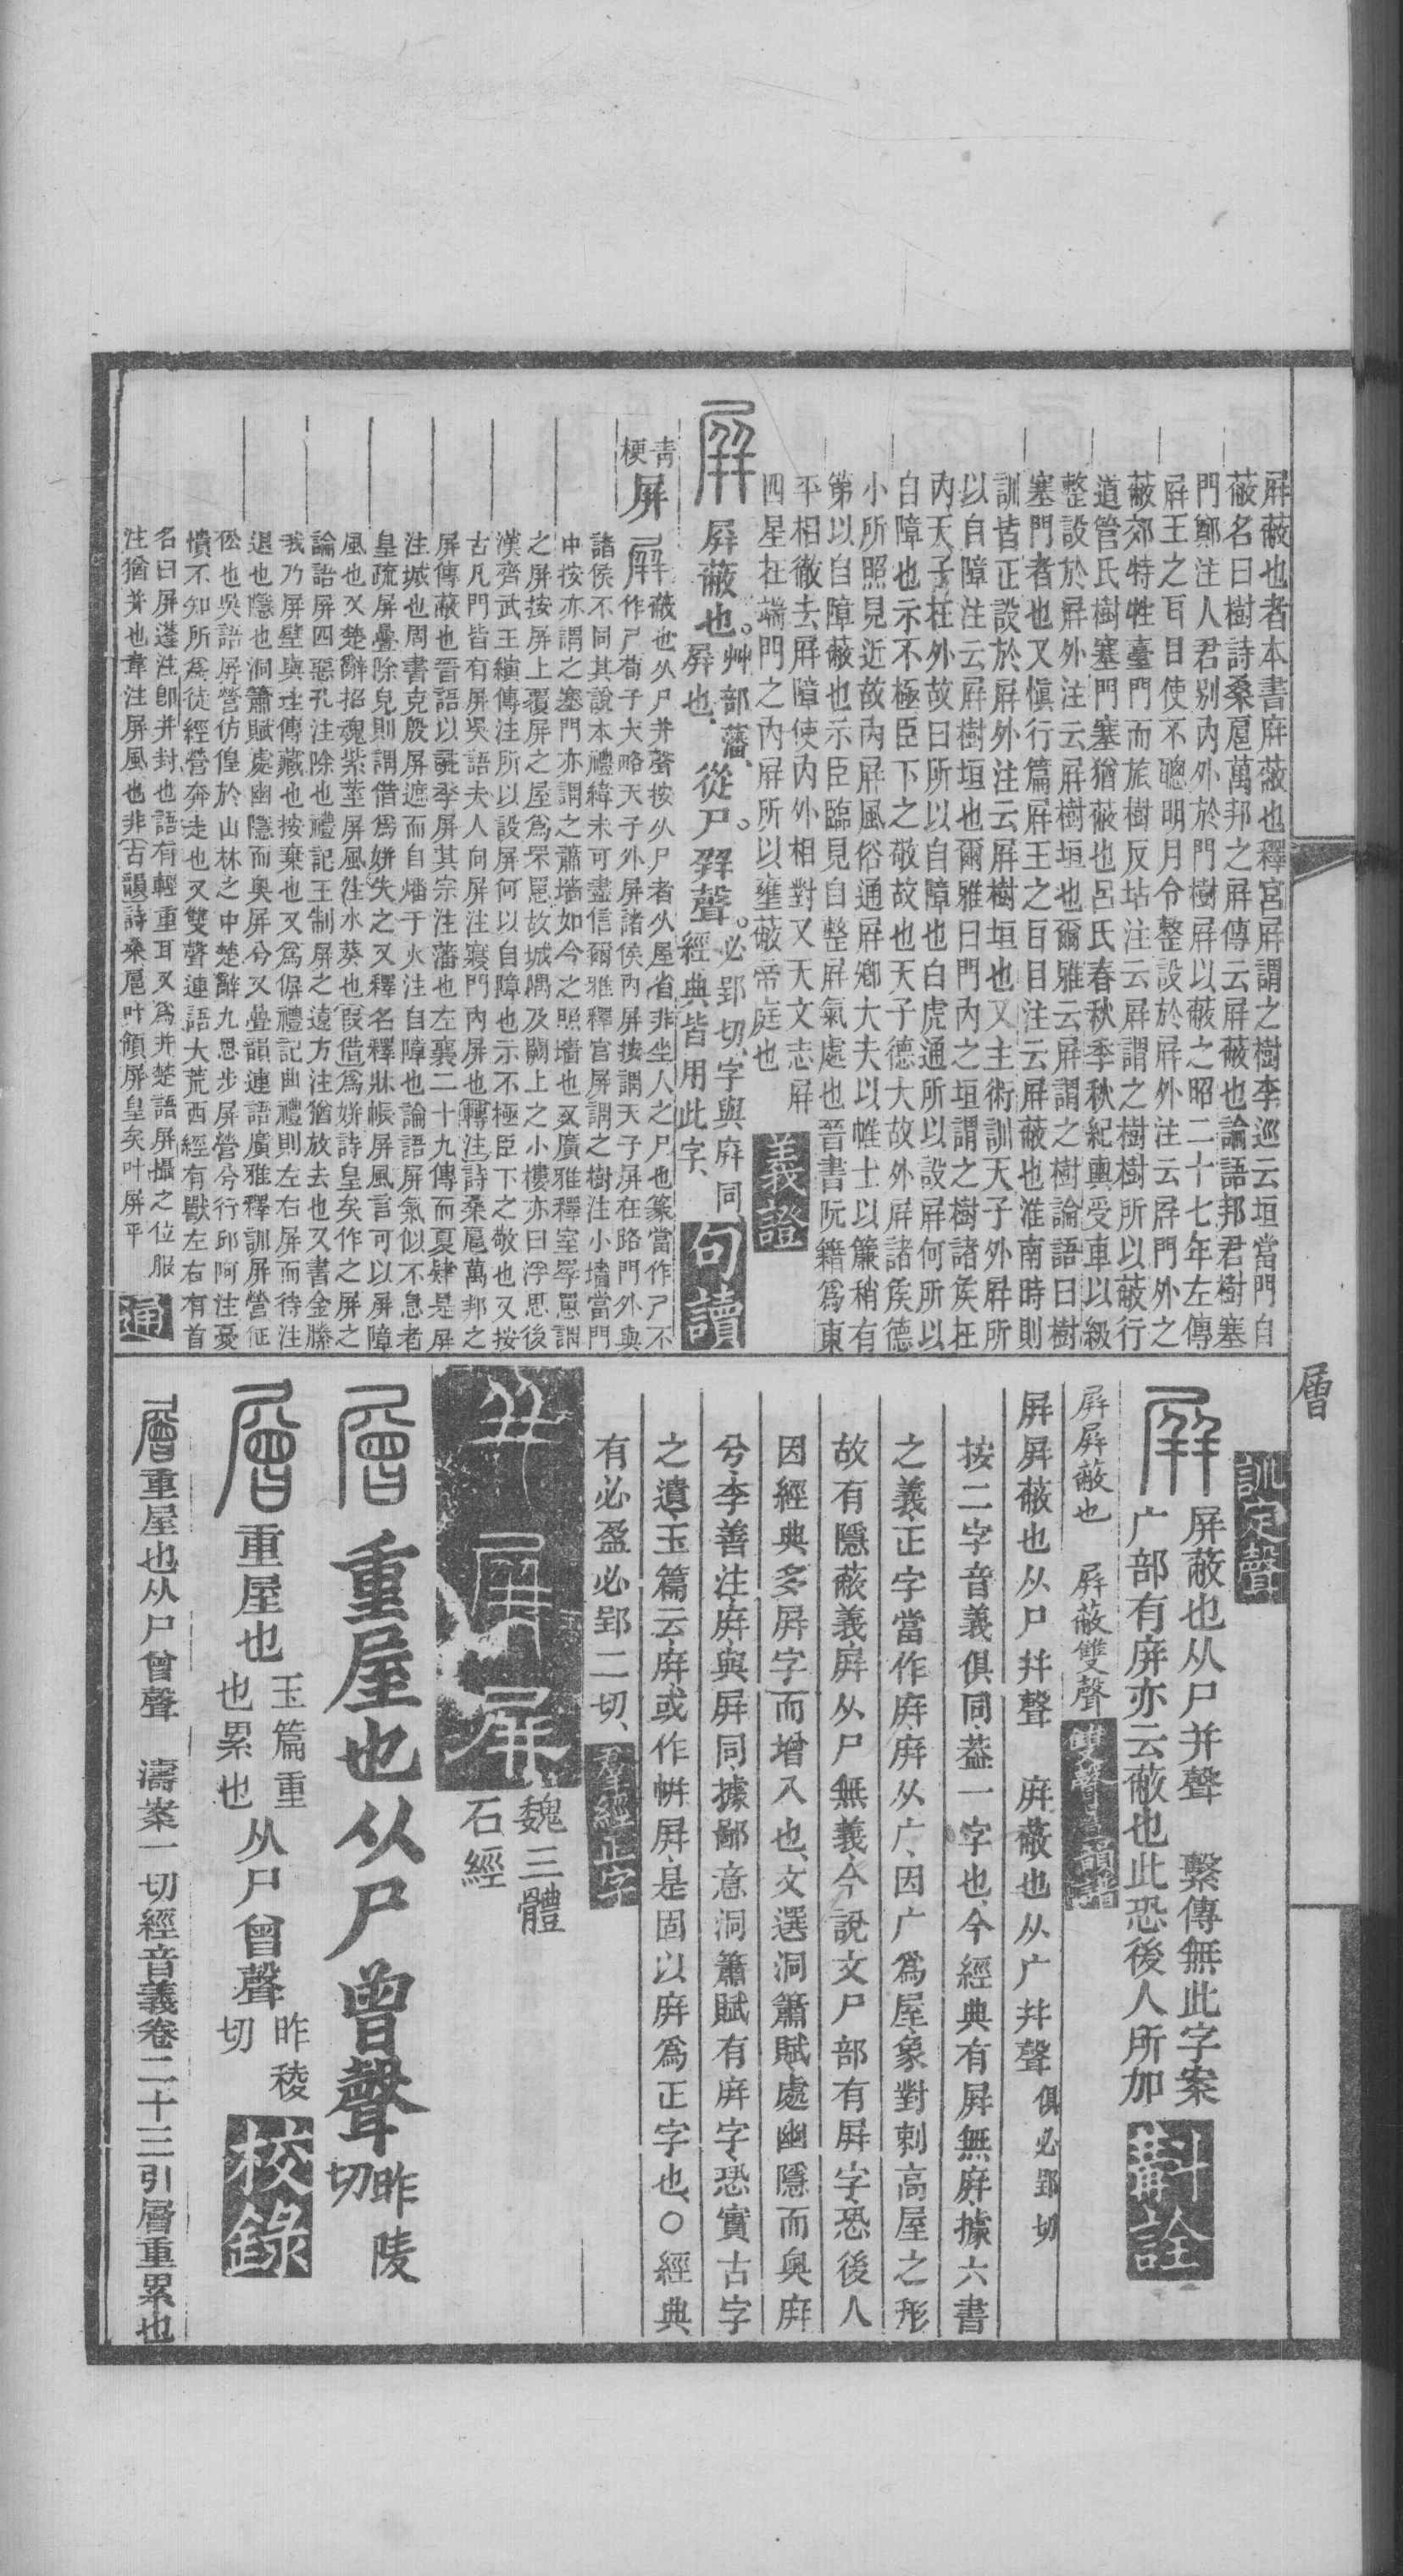 屏蔽也者本書庰蔽也釋宮屏謂之樹李巡云垣當門自
蔽名曰樹詩桑扈萬邦之屏傳云屏蔽也論語邦君樹塞
門鄭注人君别內外於門樹屏以蔽之昭二十七年左傳
屏王之耳目使不聰明月令整設於屏外注云屏門外之
蔽郊特牲臺門而旅樹反坫注云屏謂之樹樹所以蔽行
道管氏樹塞門塞猶蔽也呂氏春秋季秋紀輿受車以級
整設於屏外注云屏樹垣也爾雅云屏謂之樹論語曰樹
塞門者也又愼行篇屏王之耳目注云屏蔽也淮南時則
訓皆正設於屏外注云屏樹垣也又主術訓天子外屏所
以自障注云屏樹垣也爾雅曰門內之垣謂之樹諸侯在
內天子在外故曰所以自障也白虎通所以設屏何所以
自障也示不極臣下之敬故也天子德大故外屏諸侯德
小所照見近故內屏風俗通屏卿大夫以帷士以簾稍有
第以自障蔽也示臣臨見自整屏氣處也晉書阮籍爲東
平相徹去屏障使內外相對又天文志屏
四星在端門之內屏所以壅蔽帝庭也
義證
屏蔽也。艸部藩、屏也、從尸幷聲。必郢切、字與庰同經典皆用此字、
句讀
青梗
屏
蔽也从尸幷聲按从尸者从屋省非坐人之尸也篆當作𠃜不
作尸荀子大略天子外屏諸侯內屏按謂天子屏在路門外與
諸侯不同其說本禮緯未可盡信爾雅釋宫屏謂之樹注小墻當門
中按亦謂之塞門亦謂之蕭墻如今之照墻也又廣雅釋室罘罳謂
之屏按屏上覆屏之屋爲罘罳故城隅及闕上之小樓亦曰浮思後
漢齊武王縯傳注所以設屏何以自障也示不極臣下之敬也又按
古凡門皆有屏吳語夫人向屏注寢門內屏也轉注詩桑扈萬邦之
屏傳蔽也晉語以蕃爲屏其宗注藩也左襄二十九傳而夏肄是屏
注城也周書克殷屏遮而自燔于火注自障也論語屏氣似不息者
皇疏屏疊除皃則謂借爲姘失之又釋名釋牀帳屏風言可以屏障
風也又楚辭招魂紫莖屏風注水葵也叚借爲姘詩皇矣作之屏之
論語屏四惡孔注除也禮記王制屏之遠方注猶放去也又書金縢
我乃屏璧與珪傳藏也按棄也又爲偋禮記曲禮則左右屏而待注
退也隱也洞簫賦處幽隱而奥屏兮又疊韻連語廣雅釋訓屏營怔
忪也吳語屏營仿偟於山林之中楚辭九思步屏營兮行邱阿注憂
憒不知所爲徒經營奔走也又雙聲連語大荒西經有獸左右有首
名曰屏蓬注卽幷封也語有輕重耳又爲幷楚語屏攝之位服
注猶幷也韋注屏風也非古韻詩桑扈叶領屏皇矣叶屏平
通
訓定聲
屏蔽也从尸幷聲　繫傳無此字案
广部有庰亦云蔽也此恐後人所加
斠詮
屏屏蔽也　屏蔽雙聲
雙聲疊韻譜
屏屏蔽也从尸幷聲　庰蔽也从广幷聲俱必郢切
按二字音義俱同、葢一字也、今經典有屏無庰、據六書
之義、正字當作庰、庰从广、因广爲屋、象對刺高屋之形
故有隱蔽義、屏从尸無義、今說文尸部有屏字、恐後人
因經典多屏字而增入也、文選洞簫賦、處幽隱而奥庰
兮、李善注、庰與屏同、據鄙意洞簫賦有庰字、恐實古字
之遺、玉篇云、庰或作帡屏、是固以庰爲正字也、○經典
有必盈必郢二切、
羣經正字
魏三體石經
重屋也从尸曾聲昨陵切
重屋也玉篇重也累也从尸曾聲昨稜切
校錄
重屋也从尸曾聲　濤案一切經音義卷二十三引層重累也
層